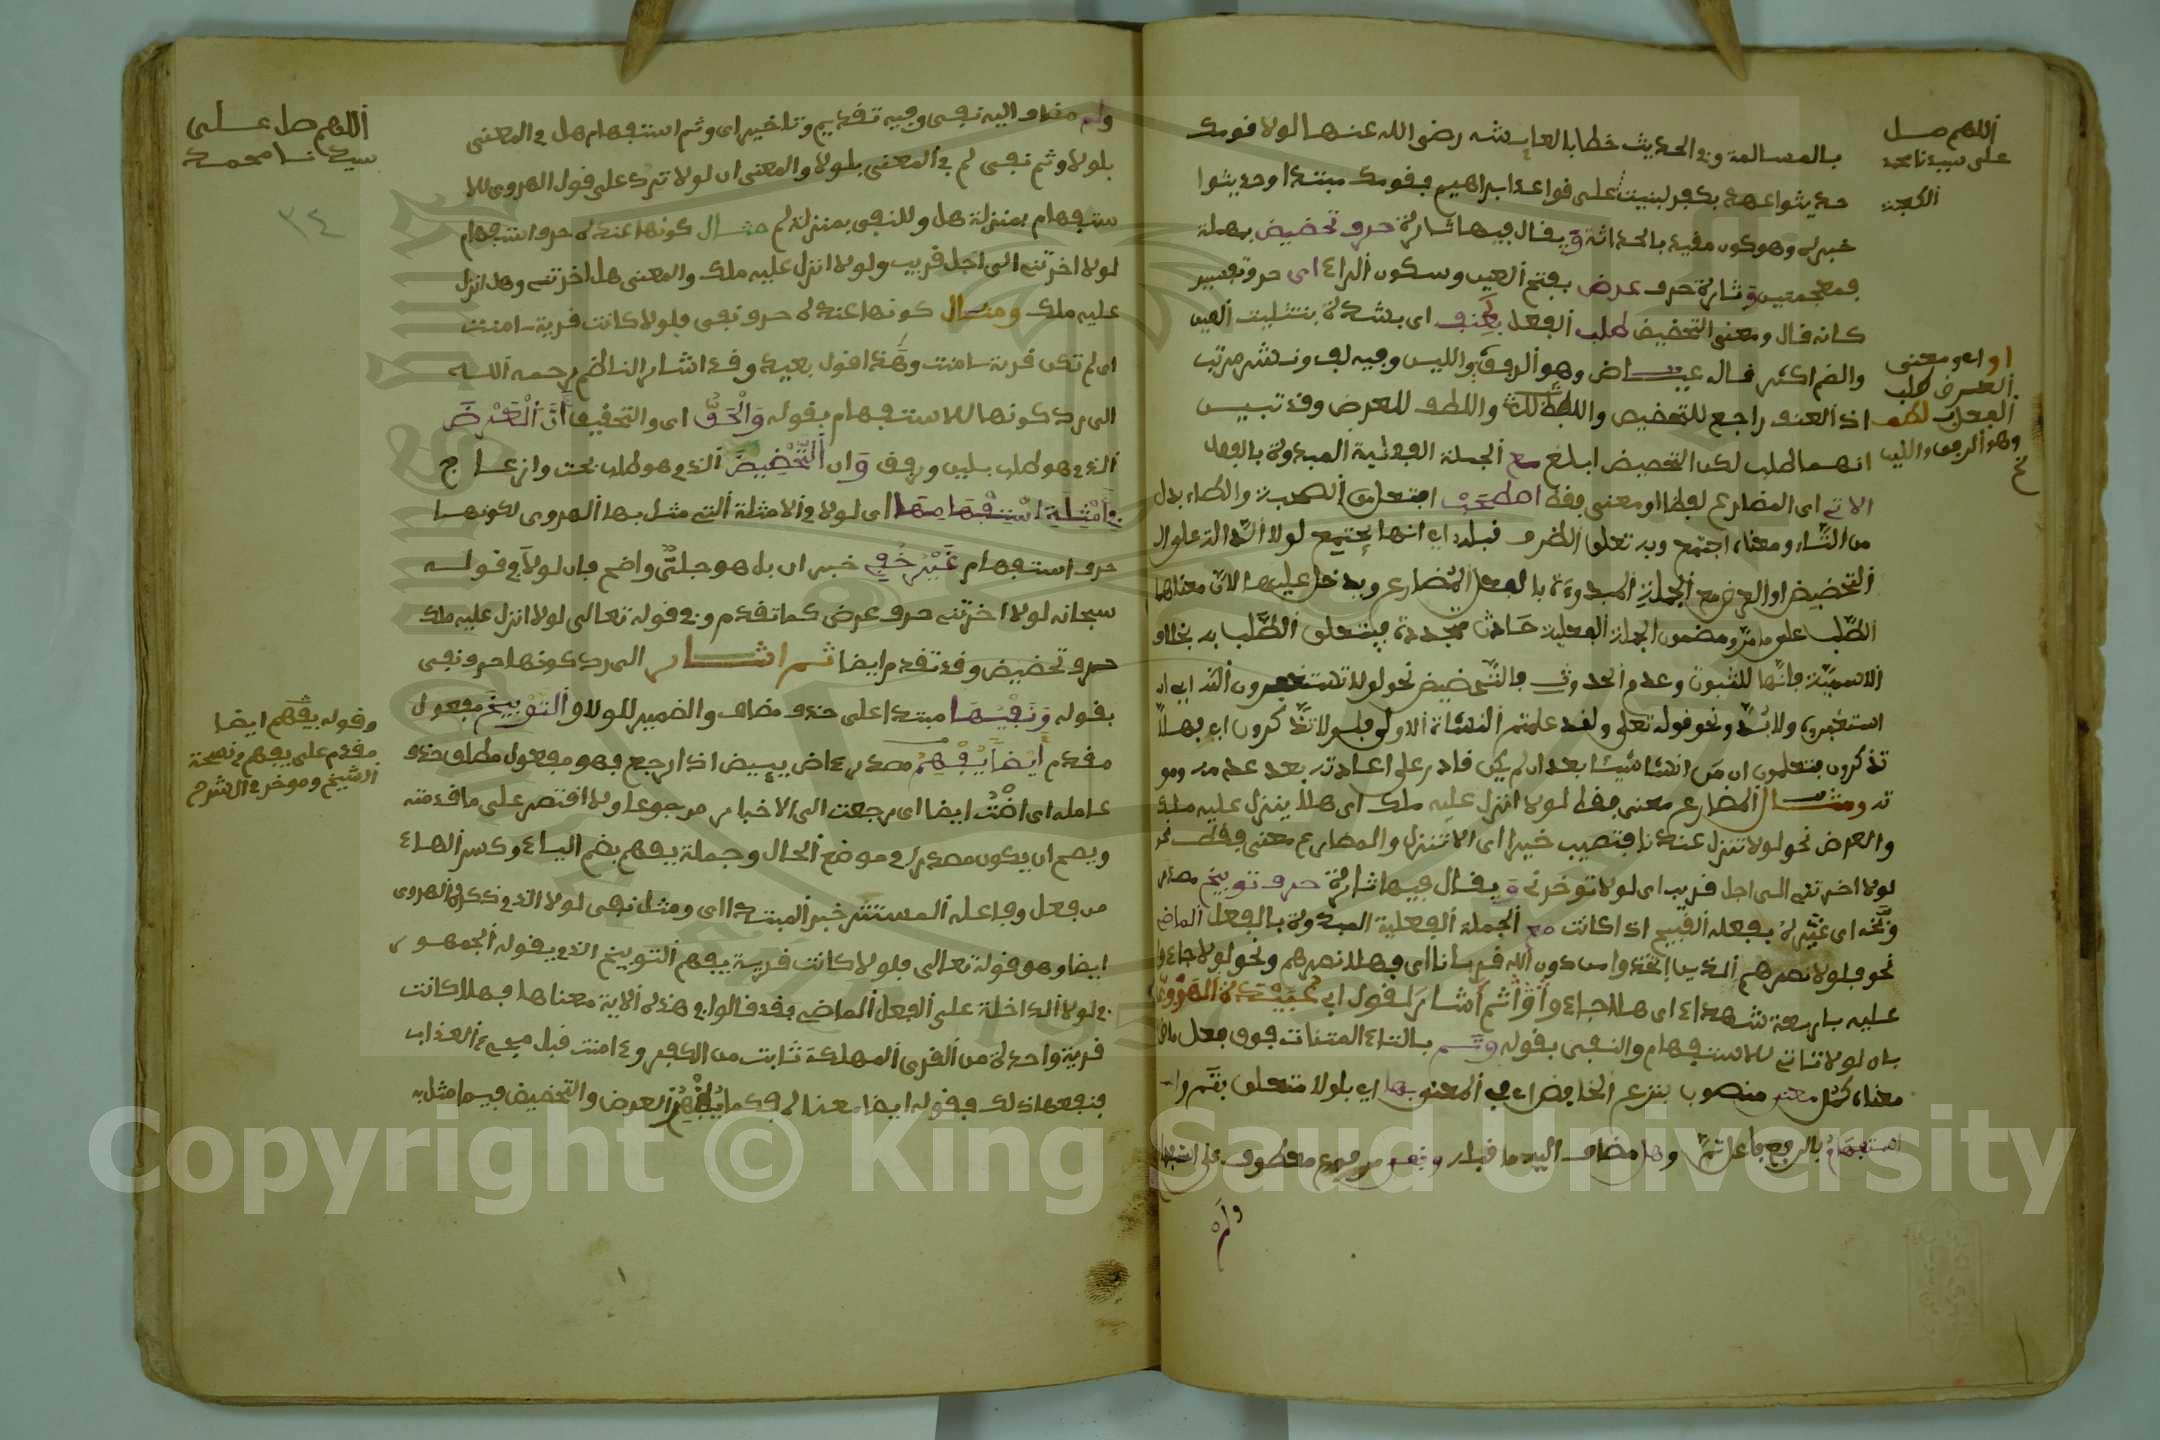 اللهم صل
على سيدنا محمد
بالمسالمة وفي الحديث خطابا لعايشة رضي الله عنها لولا قومك
حديثوا عهد بكفر لبنيت على قواعد ابراهيم فقومك مبتدا وحديثوا
خبره وهو كون مفيد بالحداثة و يقال فيها تارة حرف تحضيض بمهملة
فمعجمتين و تارة حرف عرض بفتح العين وسكون الراء اي حرف تفسير
كانه قال ومعنى التحضيض طلب الفعل بعنف اي بشدة بتثليث العين
والضم اكثر قال عياض وهو الرفق واللين وفيه لف ونشر مرتب
اذ العنف راجع للتحضيض واللطف للعرض وقد تبين
او اي ومعنى
العرض طلب
الفعل بلطف
وهو الرفق واللين
انهما لطلب لكن التحضيض ابلغ مع الجملة الفعلية المبدوة بالفعل
الاتي اي المضارع لفظا او معنى فقط اصطحب افتعل من الصحبة والطاء بدل
من التاء ومعناه اجتمع وبه تعلق الظرف قبله اي انها يجتمع لولا الدالة على
التحضيض او العرض مع الجملة المبدوة بالفعل المضارع ويدخل عليها لان معناهما
الطلب على ما مر ومضمون الجملة الفعلية حادث متجدد فيتعلق الطلب به بخلاف
الاسمية فانها للثبوت وعدم الحدوث فالتحضيض نحو لولا تستغفرون الله اي
استغفروه ولا بد ونحو قوله تعلى ولقد علمتم النشاة الاولى فلولا تذكرون اي فهلا
تذكرون فتعلمون ان من انشا شيئا بعد ان لم يكن قادر على اعادته بعد عدمه
ومثال المضارع معنى فقط لولا انزل عليه ملك اي هلا ينزل عليه ملك
والعرض نحو لولا تنزل عندنا فتصيب خيرا اي الا تنزل والمضارع معنى فقط نحو
لولا اخرتني الى اجل قريب اي لولا توخرني و يقال فيها تارة حرف توبيخ مصدر
وبخه اي عيره بفعله القبيح اذا كانت مع الجملة الفعلية المبدوة بالفعل الماض
نحو فلولا نصرهم الذين اتخذوا من دون الله قربانا اي فهلا نصرهم ونحو لولا جاءوا
عليه باربعة شهداء اي هلا جاءوا ثم اشار لقول ابي عبيدة الهروي
بان لولا تاتي للاستفهام والنفي بقوله وتم بالتاء المثناة فوق فعل ماض
معناه كمل معنى منصوب بنزع الخافض اي في المعنى بها اي بلولا متعلق بتم
استفهام بالرفع فاعل تم وها مضاف اليه ما قبله ونفي مرفوع معطوف على استفهام
ولم
اللهم صل على
سيدنا محمد
٣٤
ولم مضاف اليه نفي وفيه تقديم وتاخير اي وتم استفهام هل في المعنى
بلولا وتم نفي لم في المعنى بلولا والمعنى ان لولا ترد على قول الهروي للا
ستفهام بمنزلة هل وللنفي بمنزلة لم مثال كونها عنده حرف استفهام
لولا اخرتني الى اجل قريب ولولا انزل عليه ملك والمعنى هل اخرتني وهل انزل
عليه ملك ومثال كونها عنده حرف نفي فلولا كانت قرية امنت
اي لم تكن قرية امنت وهذا قول بعيد وقد اشار الناظم رحمه الله
الى رد كونها للاستفهام بقوله والحق اي والتحقيق ان العرض
الذي هو طلب بلين ورفق وان التحضيض الذي هو طلب بحث وازعاج
في امثلة استفهامها اي لولا في الامثلة التي مثل بها الهروي لكونها
حرف استفهام غير خفي خبر ان بل هو جلي واضح فان لولا في قوله
سبحانه لولا اخرتني حرف عرض كما تقدم وفي قوله تعالى لولا انزل عليه ملك
حرف تحضيض وقد تقدم ايضا ثم اشار الى رد كونها حرف نفي
بقوله ونفيها مبتدا على حذف مضاف والضمير للولا والتوبيخ مفعول
مقدم ايضا يفهم مصدر ءاض ييض اذا رجع فهو مفعول مطلق حذف
عامله اي اضت ايضا اي رجعت الى الاخبار مرجوعا ولا اقتصر على ما قدمته
ويصح ان يكون مصدرا في موضع الحال وجملة يفهم بضم الياء وكسر الهاء
من فعل وفاعله المستتر خبر المبتدا اي ومثل نفي لولا الذي ذكره الهروي
ايضا وهو قوله تعالى فلولا كانت قرية يفهم التوبيخ الذي يقوله الجمهور
في لولا الداخلة على الفعل الماضي فقد قالوا في هذه الاية معناها فهلا كانت
قرية واحدة من القرى المهلكة تابت من الكفر وءامنت قبل مجيء العذاب
فنفعها ذلك فقوله ايضا معناه فكما يفهم العرض والتحضيض فيما مثل به
وقوله يفهم ايضا
مقدم على يفهم في نسخة
الشيخ وموخر في الشرح
Copyright © King Saud University